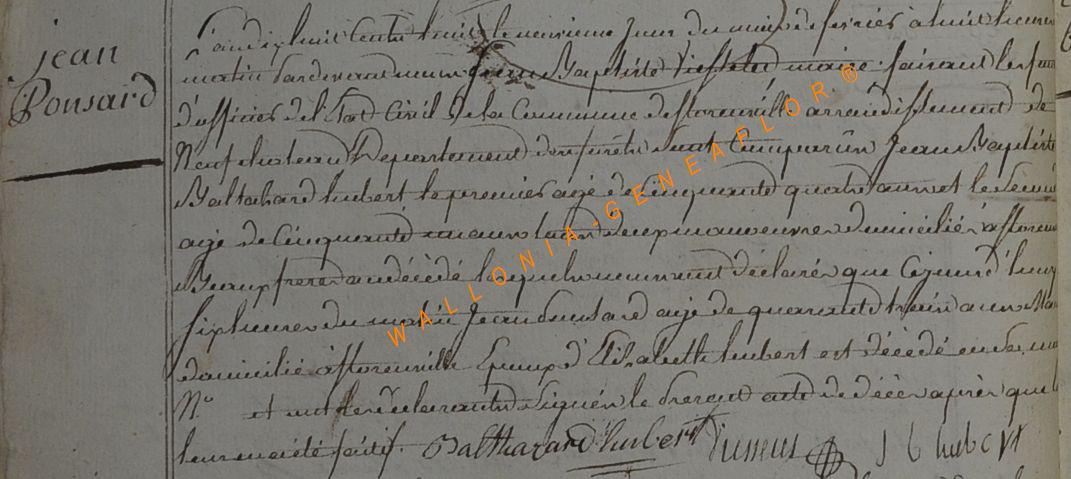 jean
Ponsard
L'an dix huit Cents huit le neuvieme Jour du mois de fevrier a huit heures
matin Pardevant nous Jean Baptiste maire faisant les fonc
d'officier de l'Etat Civil de la Commune d'assenoville arrondissement de
Neufchateau Departement des forêts Sont Comparûs Jean Baptiste
Baltazard hubert le premier agé de Cinquante quatre ans et le Secon
agé de Cinquante un ans domicilié
Beaupfreres au décédé lesquels nous ont déclarés que Cejourd'huy
six heures du matin Jean agé de quarante trois ans
domicilié Epoux d'Elisabeth hubert est décédé en sa
N° et ont les déclarants Signés le present acte de décès après que
leur en a été fait
Balthazard hubert J b hubert
WALLONIA-GENEAFLOR®